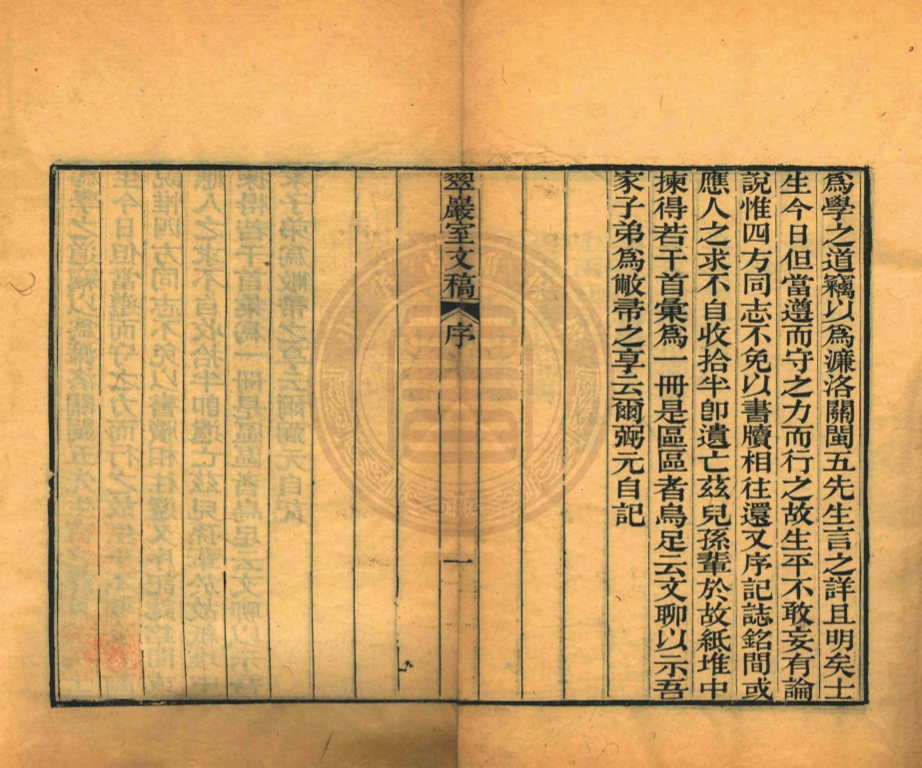 爲學之道竊以爲濂洛關閩五先生言之詳且明矣士
生今日但當遵而守之力而行之故生平不敢妄有論
說惟四方同志不免以書牘相往還又序記誌銘間或
應人之求不自收拾半卽遺亡茲兒孫輩於故紙堆中
揀得若干首彙爲一冊是區區者烏足云文聊以示吾
家子弟爲敝帚之享云爾弼元自記
翠巖室文稿 序 一